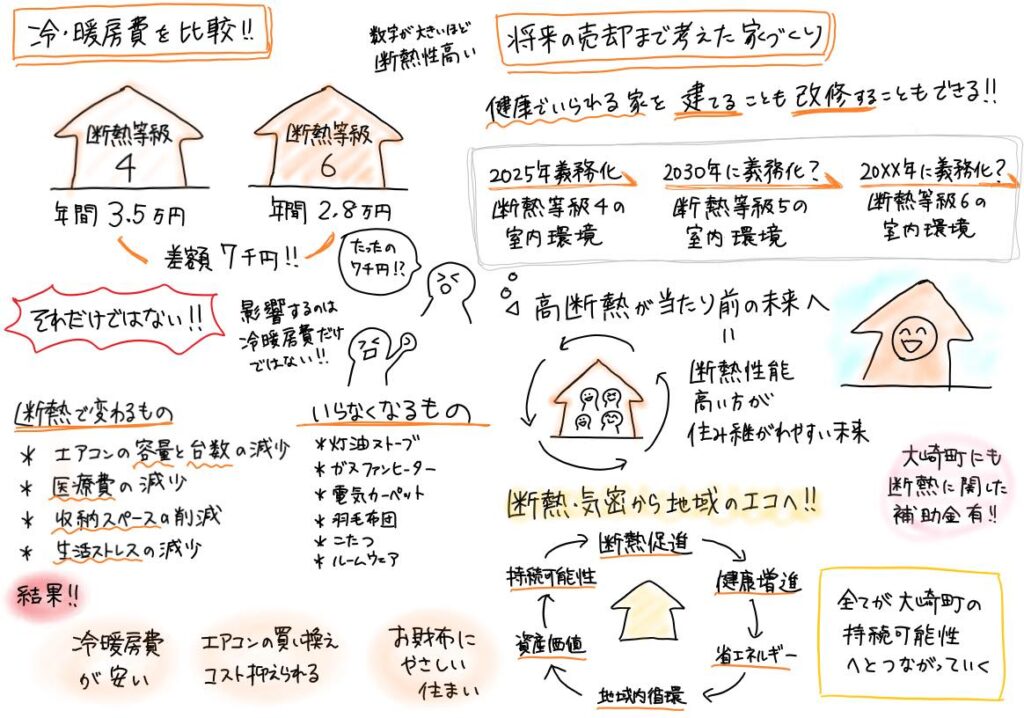 冷・暖房費を比較!!
数字が大きいほど
断熱性高い
断熱等級
4
断熱等級
6
年間 3.5万円
年間 2.8万円
差額 7千円!!
たったの
7千円!?
それだけではない!!
影響するのは
冷暖房費だけ
ではない!!
断熱で変わるもの
* エアコンの容量と台数の減少
* 医療費の減少
* 収納スペースの削減
* 生活ストレスの減少
いらなくなるもの
*灯油ストーブ
*ガスファンヒーター
*電気カーペット
*羽毛布団
*こたつ
*ルームウェア
結果!!
冷暖房費
が安い
エアコンの買い換え
コスト抑えられる
お財布に
やさしい
住まい
将来の売却まで考えた家づくり
健康でいられる家を建てることも改修することもできる!!
2025年義務化
断熱等級4の
室内環境
2030年に義務化?
断熱等級5の
室内環境
20XX年に義務化?
断熱等級6の
室内環境
高断熱が当たり前の未来へ
=
断熱性能
高い方が
住み継がれやすい未来
大崎町にも
断熱に関した
補助金有!!
断熱・気密から地域のエコへ!!
断熱促進
健康増進
省エネルギー
地域内循環
資産価値
持続可能性
全てが大崎町の
持続可能性
へとつながっていく